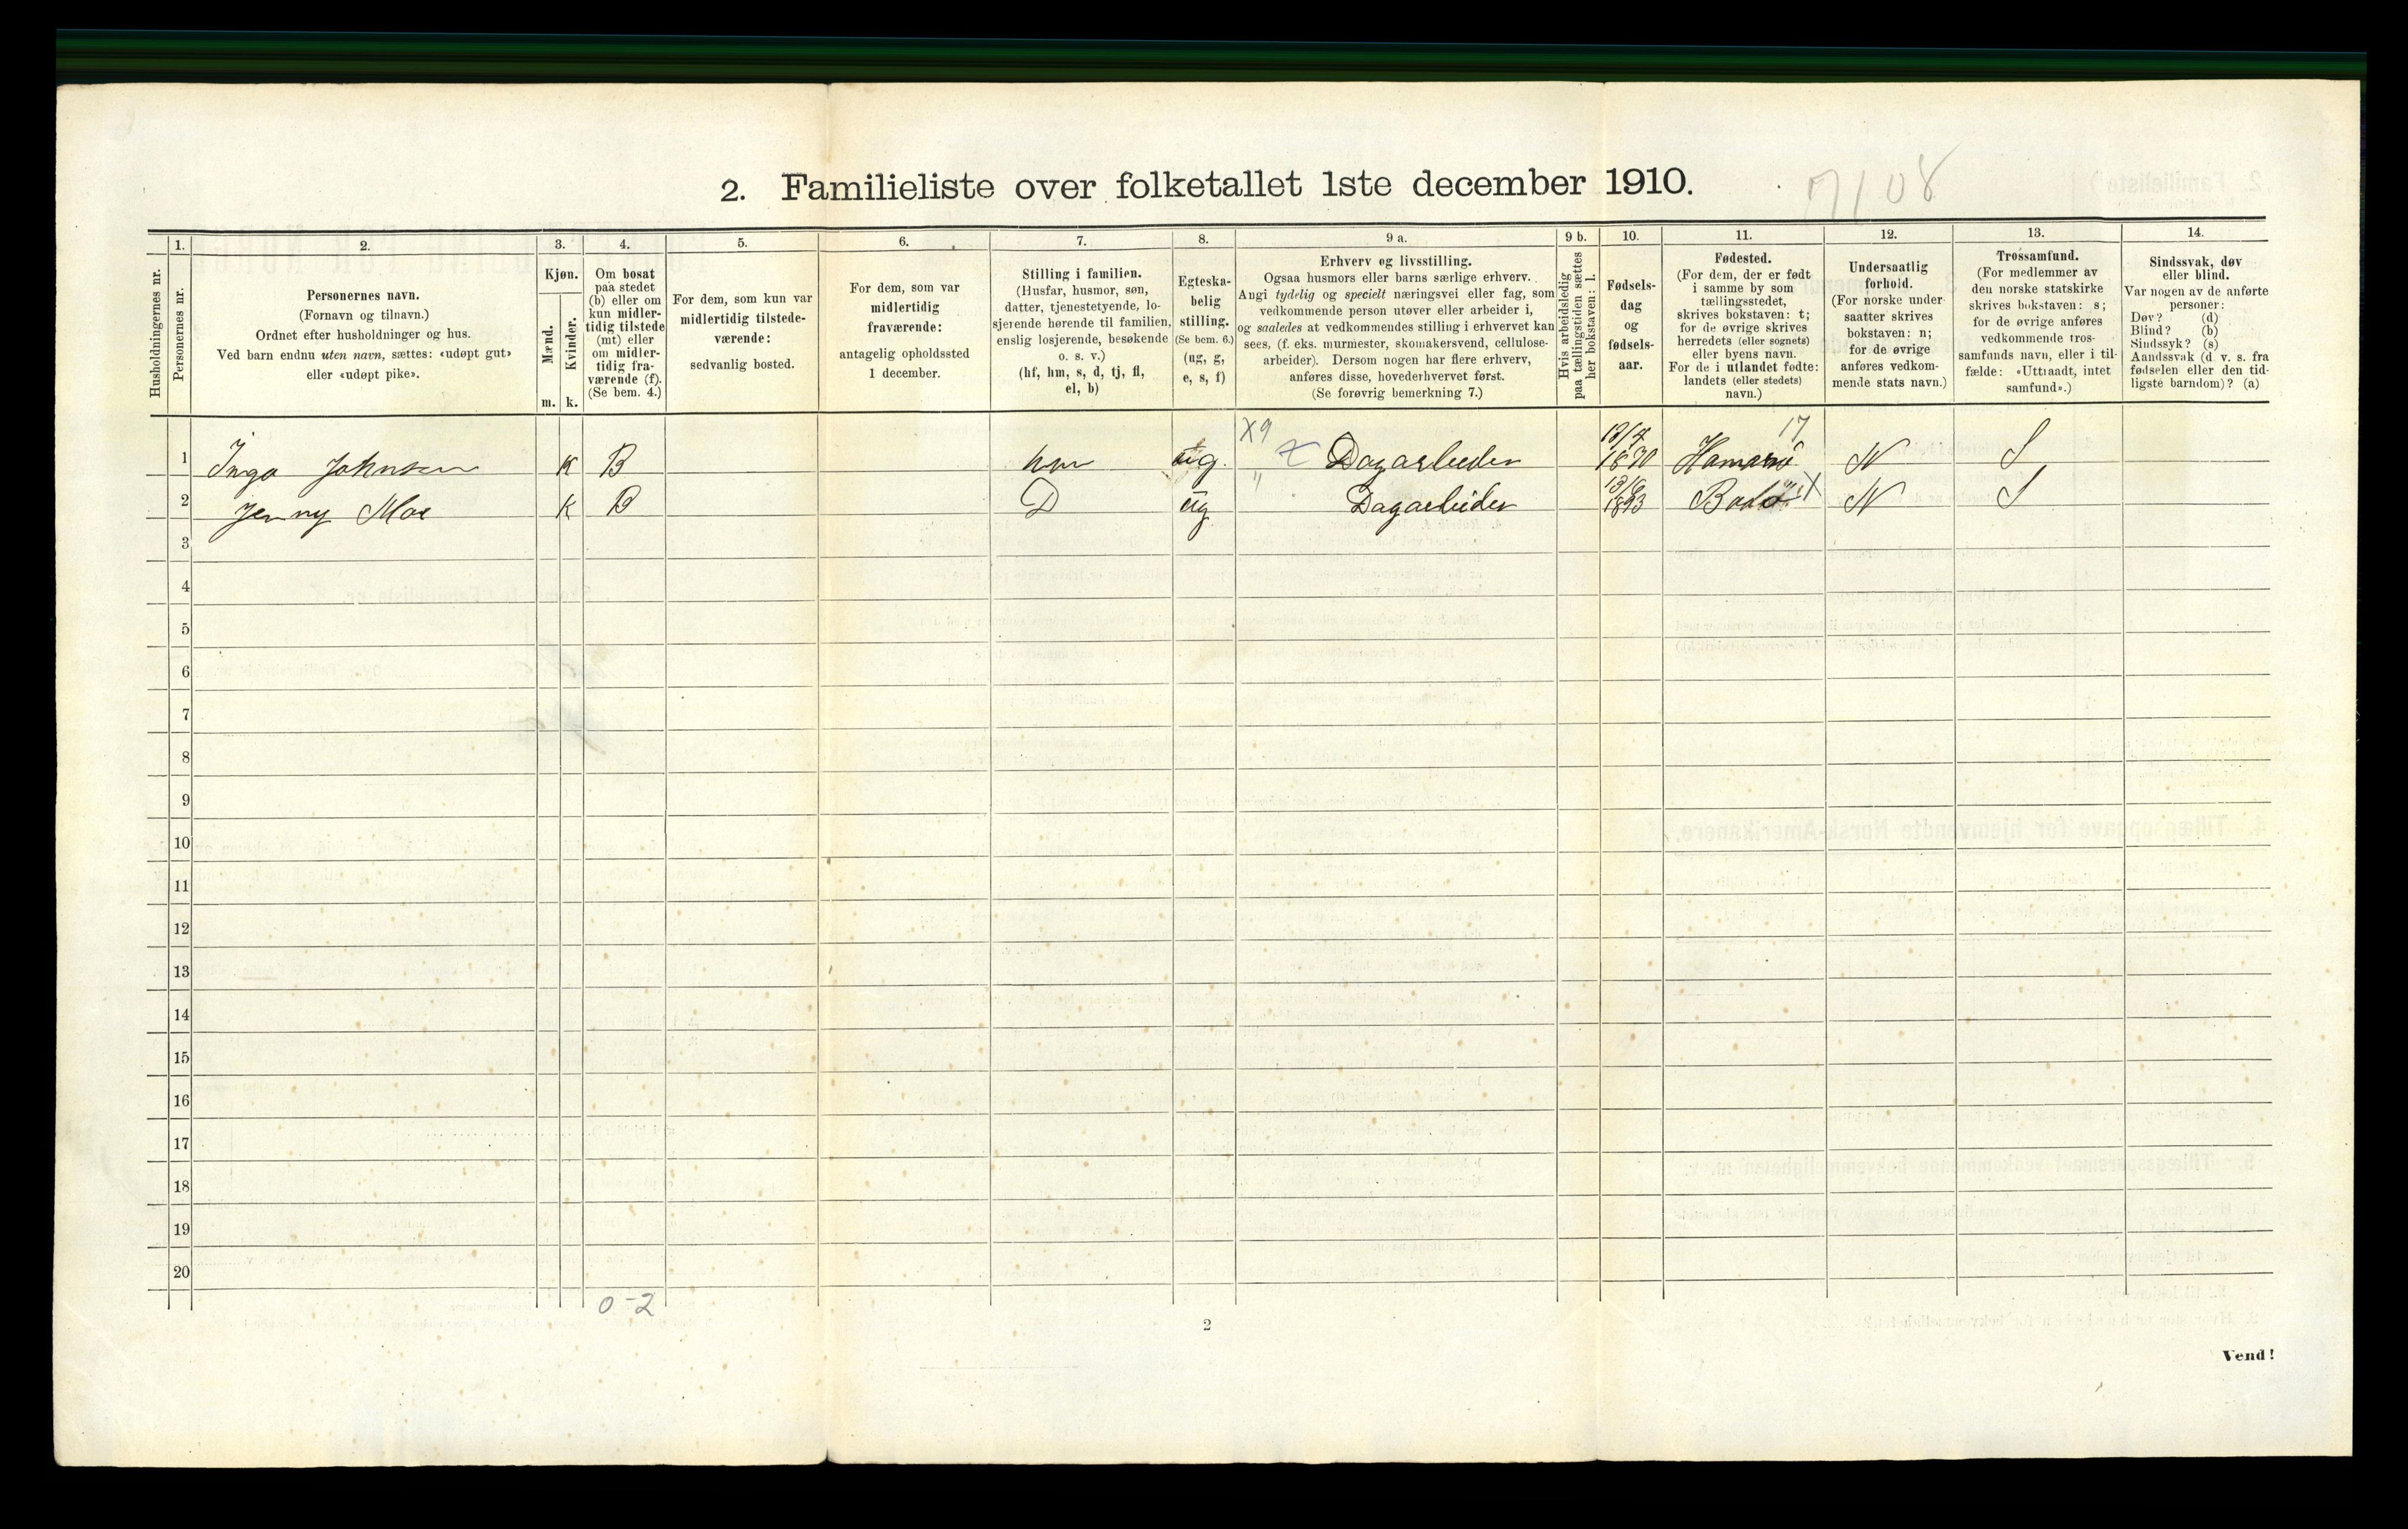 2. Familieliste over folketallet 1ste december 1910.
1. 2. 3. 4. 5. 6. 7. 8. 9 a. 9 b. 10. 11. 12. 13. 14.
Husholdningernes nr.
Personernes nr.
Personernes navn.
(Fornavn og tilnavn.)
Ordnet efter husholdninger og hus.
Ved barn endnu uten navn, sættes: «udøpt gut»
eller «udøpt pike».
Kjøn.
Mænd.
Kvinder.
m. k.
Om bosat
paa stedet
(b) eller om
kun midler-
tidig tilstede
(mt) eller
om midler-
tidig fra-
værende (f).
(Se bem. 4.)
For dem, som kun var
midlertidig tilstede-
værende:
sedvanlig bosted.
For dem, som var
midlertidig
fraværende:
antagelig opholdssted
1 december.
Stilling i familien.
(Husfar, husmor, søn,
datter, tjenestetyende, lo-
sjerende hørende til familien,
enslig losjerende, besøkende
o. s. v.)
(hf, hm, s, d, tj, fl,
el, b)
Egteska-
belig
stilling.
(Se bem. 6.)
(ug, g,
e, s, f)
Erhverv og livsstilling.
Ogsaa husmors eller barns særlige erhverv.
Angi tydelig og specielt næringsvei eller fag, som
vedkommende person utøver eller arbeider i,
og saaledes at vedkommendes stilling i erhvervet kan
sees, (f. eks. murmester, skomakersvend, cellulose-
arbeider). Dersom nogen har flere erhverv,
anføres disse, hovederhvervet først.
(Se forøvrig bemerkning 7.)
Hvis arbeidsledig
paa tællingstiden sættes
her bokstaven: l.
Fødsels-
dag
og
fødsels-
aar.
Fødested.
(For dem, der er født
i samme by som
tællingsstedet,
skrives bokstaven: t;
for de øvrige skrives
herredets (eller sognets)
eller byens navn.
For de i utlandet fødte:
landets (eller stedets)
navn.)
Undersaatlig
forhold.
(For norske under-
saatter skrives
bokstaven: n;
for de øvrige
anføres vedkom-
mende stats navn.)
Trossamfund.
(For medlemmer av
den norske statskirke
skrives bokstaven: s;
for de øvrige anføres
vedkommende tros-
samfunds navn, eller i til-
fælde: «Uttraadt, intet
samfund».)
Sindssvak, døv
eller blind.
Var nogen av de anførte
personer:
Døv? (d)
Blind? (b)
Sindssyk? (s)
Aandssvak (d. v. s. fra
fødselen eller den tid-
ligste barndom)? (a)
X9 17
1 Inga Johnsen K B hm ug. Dagarbeider 1870 Hamarø N S
2 Jenny Moe K B D ug Dagarbeider 13/6 1893 Bodø X N S
3
4
5
6
7
8
9
10
11
12
13
14
15
16
17
18
19
20
0-2
2
Vend!